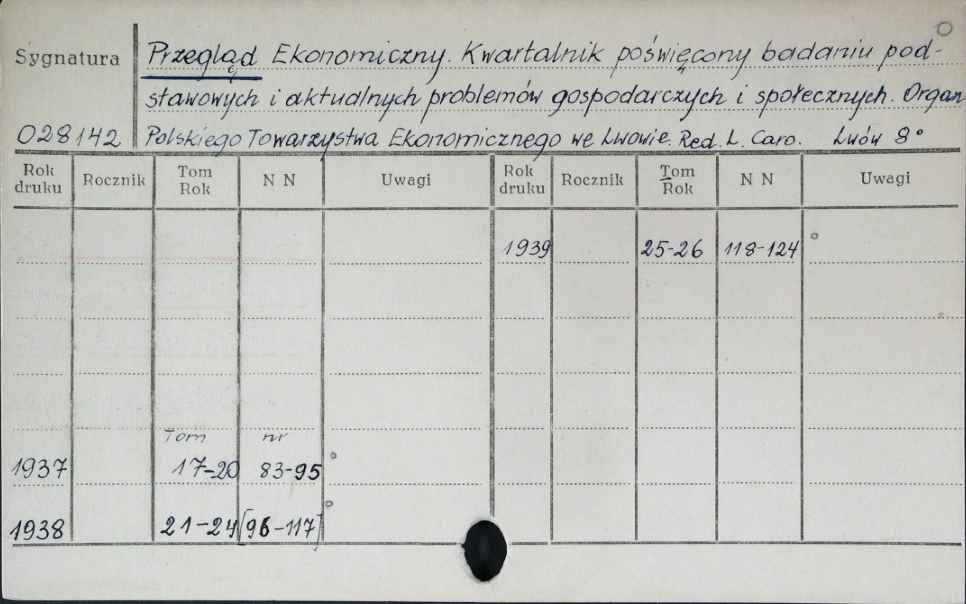 Sygnatura Przegląd Ekonomiczny. Kwartalnik poświęcony badaniu pod-
stawowych i aktualnych problemów gospodarczych i społecznych. Organ
028142 Polskiego Towarzystwa Ekonomicznego we Lwowie. Red. L. Caro. Lwów 8°
Rok druku Rocznik Tom Rok N N Uwagi Rok druku Rocznik Tom Rok N N Uwagi
1939 25-26 118-124
Tom nr
1937 17-20 83-95
1938 21-24 [96-117]